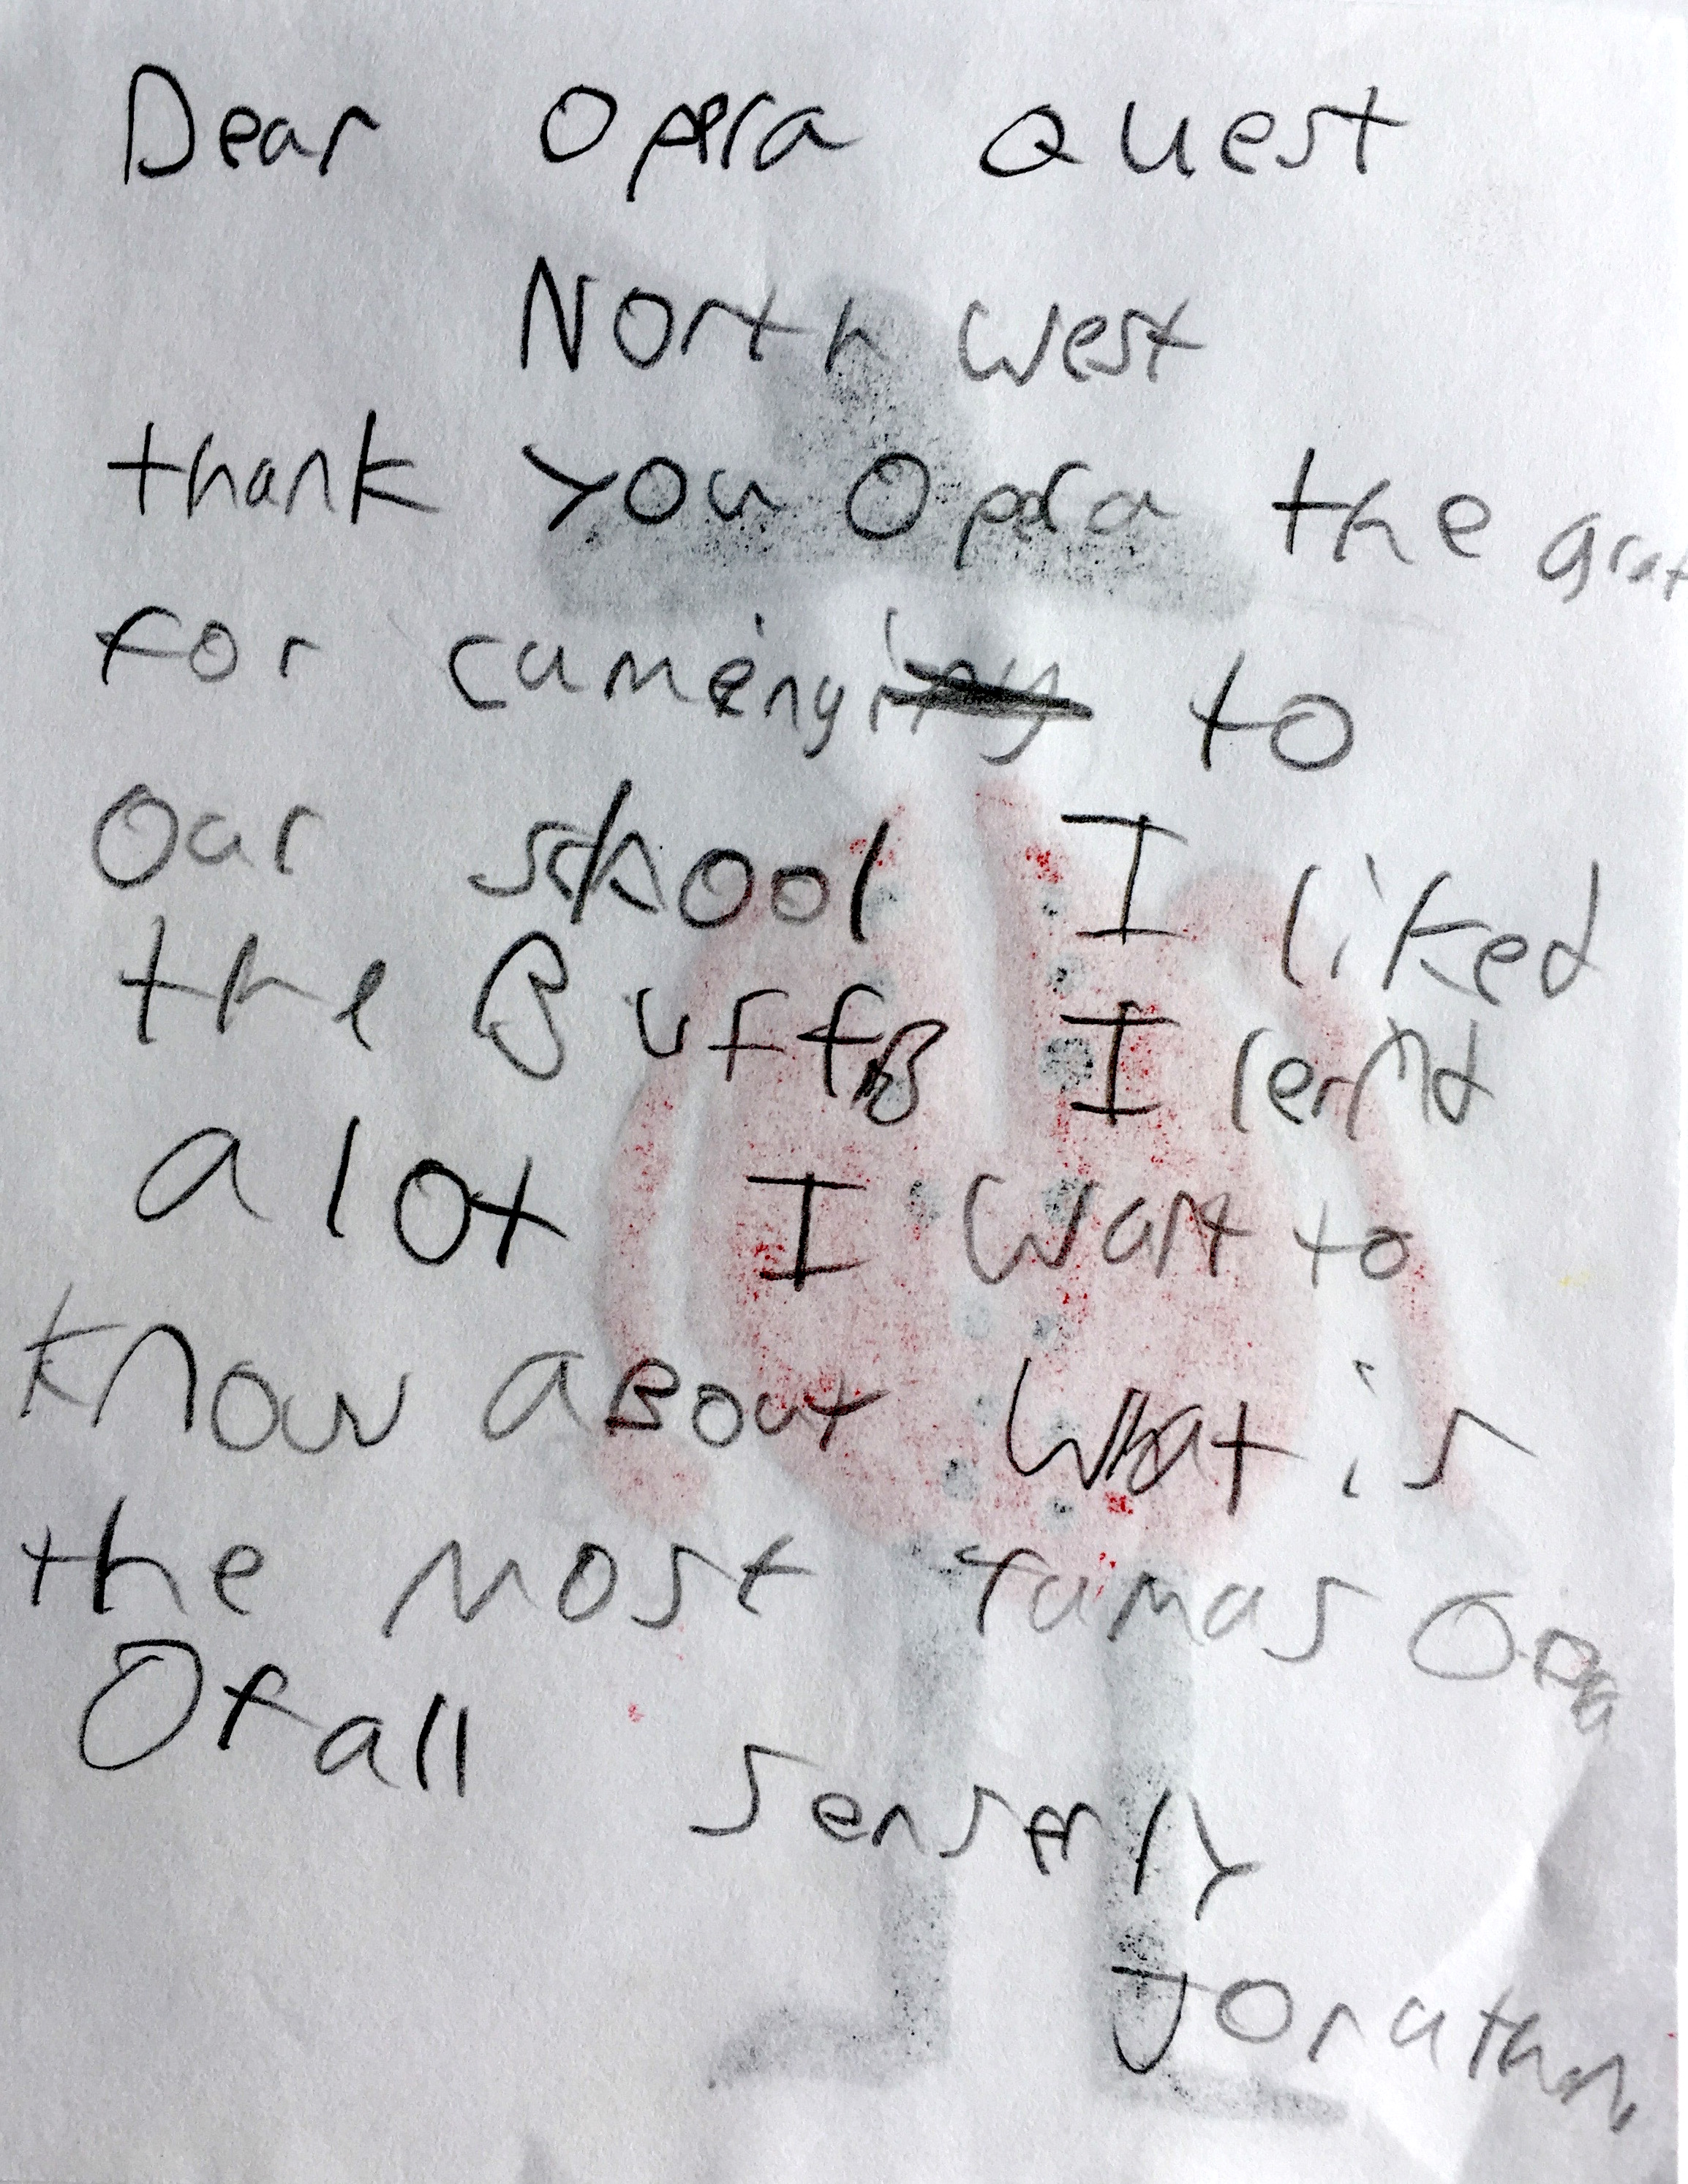 Dear Opera Quest
North West
thank you Opera the grat
for cumeing to
our school I liked
the Buffo I lernd
a lot I want to
know aBout what is
the most famas Opra
Of all
senserly
Jonathan